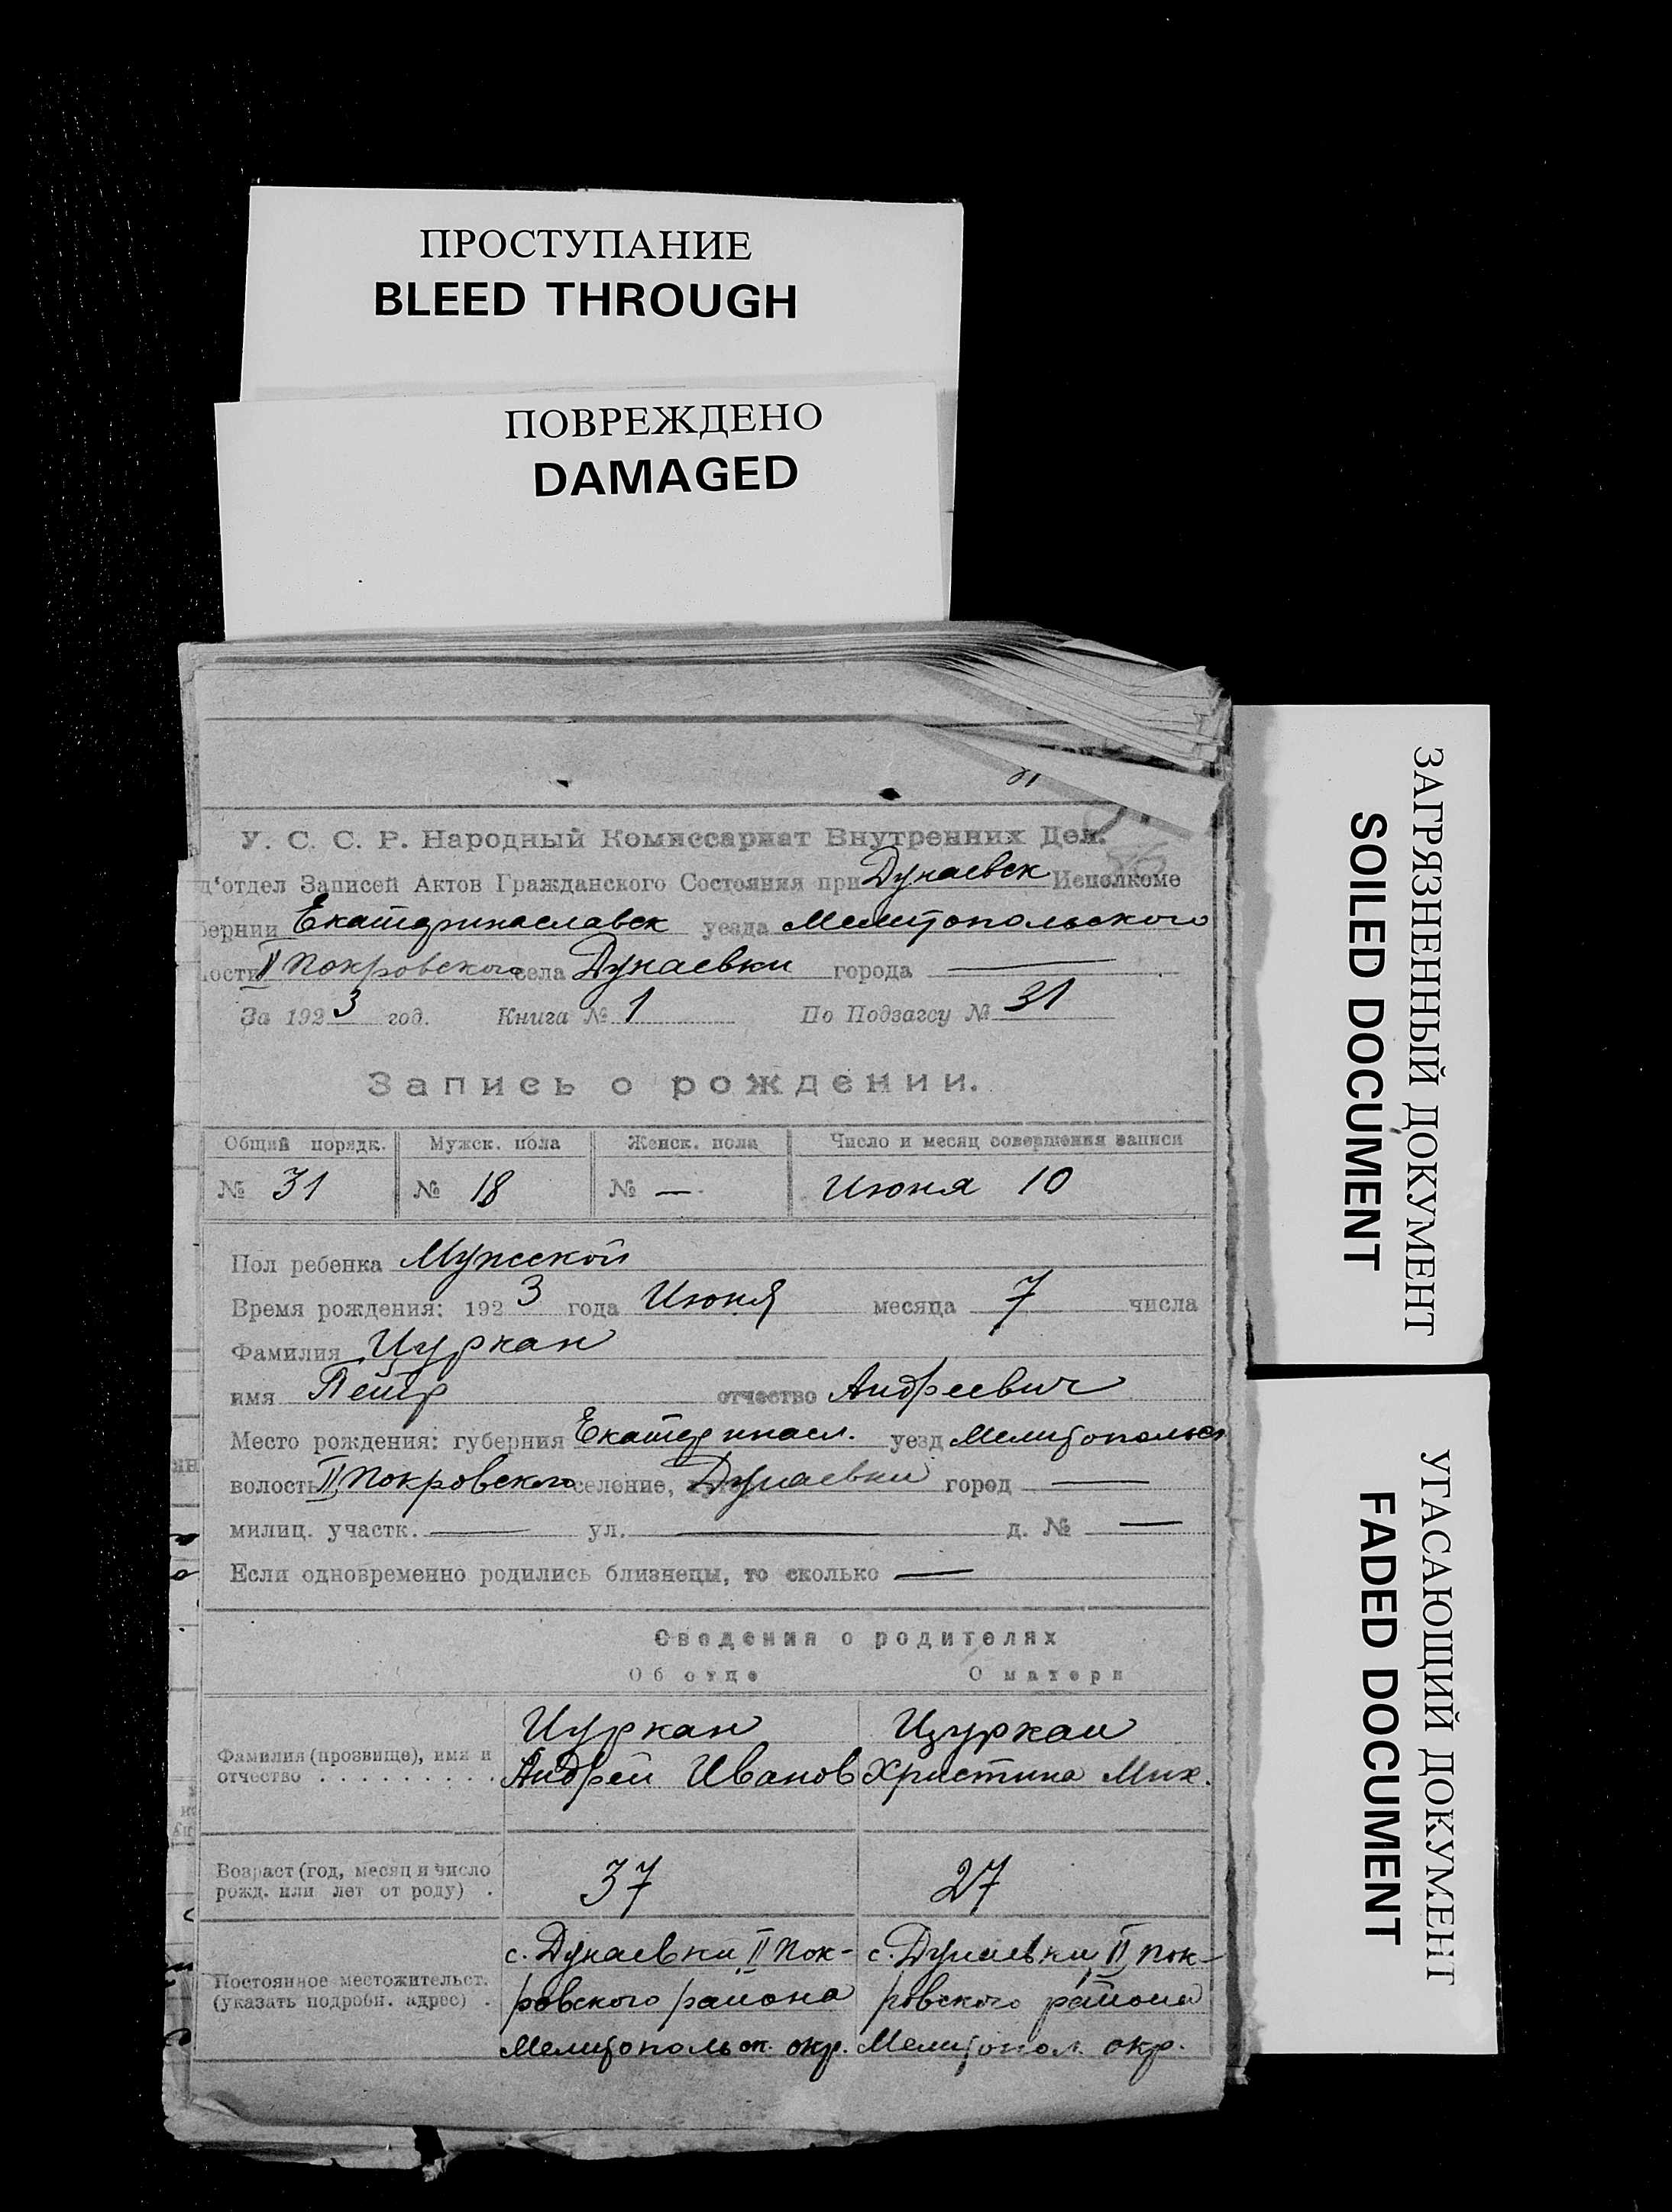 ПРОСТУПАНИЕ
BLEED THROUGH
ПОВРЕЖДЕНО
DAMAGED
ЗАГРЯЗНЕННЫЙ ДОКУМЕНТ
SOILED DOCUMENT
УГАСАЮЩИЙ ДОКУМЕНТ
FADED DOCUMENT
У. С. С. Р. Народный Комиссариат Внутренних Дел.
д'отдел Записей Актов Гражданского Состояния при Дунаевск Исполкоме
бернии Екатеринаславск уезда Мелитопольского
лости II Покровского села Дунаевки города —
За 1923 год. Книга № 1 По Подзагсу № 31
Запись о рождении.
Общий порядк. Мужск. пола Женск. пола Число и месяц совершения записи
№ 31 № 18 № — Июня 10
Пол ребенка Мужской
Время рождения: 1923 года Июня месяца 7 числа
Фамилия Цуркан
имя Петр отчество Андреевич
Место рождения: губерния Екатеринасл. уезд Мелитопольск
волость II Покровского селение, Дунаевки город —
милиц. участк. — ул. — д. № —
Если одновременно родились близнецы, то сколько —
Сведения о родителях
Об отце О матери
Фамилия (прозвище), имя и отчество . . . . . . . . . .
Цуркан Андрей Иванов
Цуркан Христина Мих.
Возраст (год, месяц и число рожд. или лет от роду) .
37 27
Постоянное местожительст. (указать подробн. адрес) .
с. Дунаевки II Пок-
ровского района
Мелитопольск. окр.
с. Дунаевки II Пок-
ровского района
Мелитопол. окр.